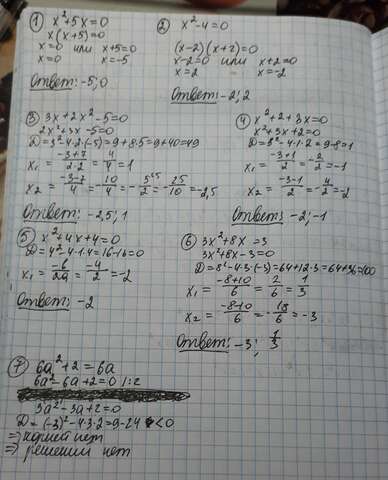 ① x²+5x=0
x(x+5)=0
x=0 или x+5=0
x=0 x=-5
Ответ: -5; 0
② x²-4=0
(x-2)(x+2)=0
x-2=0 или x+2=0
x=2 x=-2
Ответ: -2; 2
③ 3x+2x²-5=0
2x²+3x-5=0
D=3²-4·2·(-5)=9+8·5=9+40=49
x₁=(-3+7)/(2·2)=4/4=1
x₂=(-3-7)/4=-10/4=-5/2=-25/10=-2,5
Ответ: -2,5; 1
④ x²+2+3x=0
x²+3x+2=0
D=3²-4·1·2=9-8=1
x₁=(-3+1)/2=-2/2=-1
x₂=(-3-1)/2=-4/2=-2
Ответ: -2; -1
⑤ x²+4x+4=0
D=4²-4·1·4=16-16=0
x₁=-b/2a=-4/2=-2
Ответ: -2
⑥ 3x²+8x=3
3x²+8x-3=0
D=8²-4·3·(-3)=64+12·3=64+36=100
x₁=(-8+10)/6=2/6=1/3
x₂=(-8-10)/6=-18/6=-3
Ответ: -3; 1/3
⑦ 6a²+2=6a
6a²-6a+2=0 |:2
3a²-3a+2=0
D=(-3)²-4·3·2=9-24<0
⇒ корней нет
⇒ решений нет